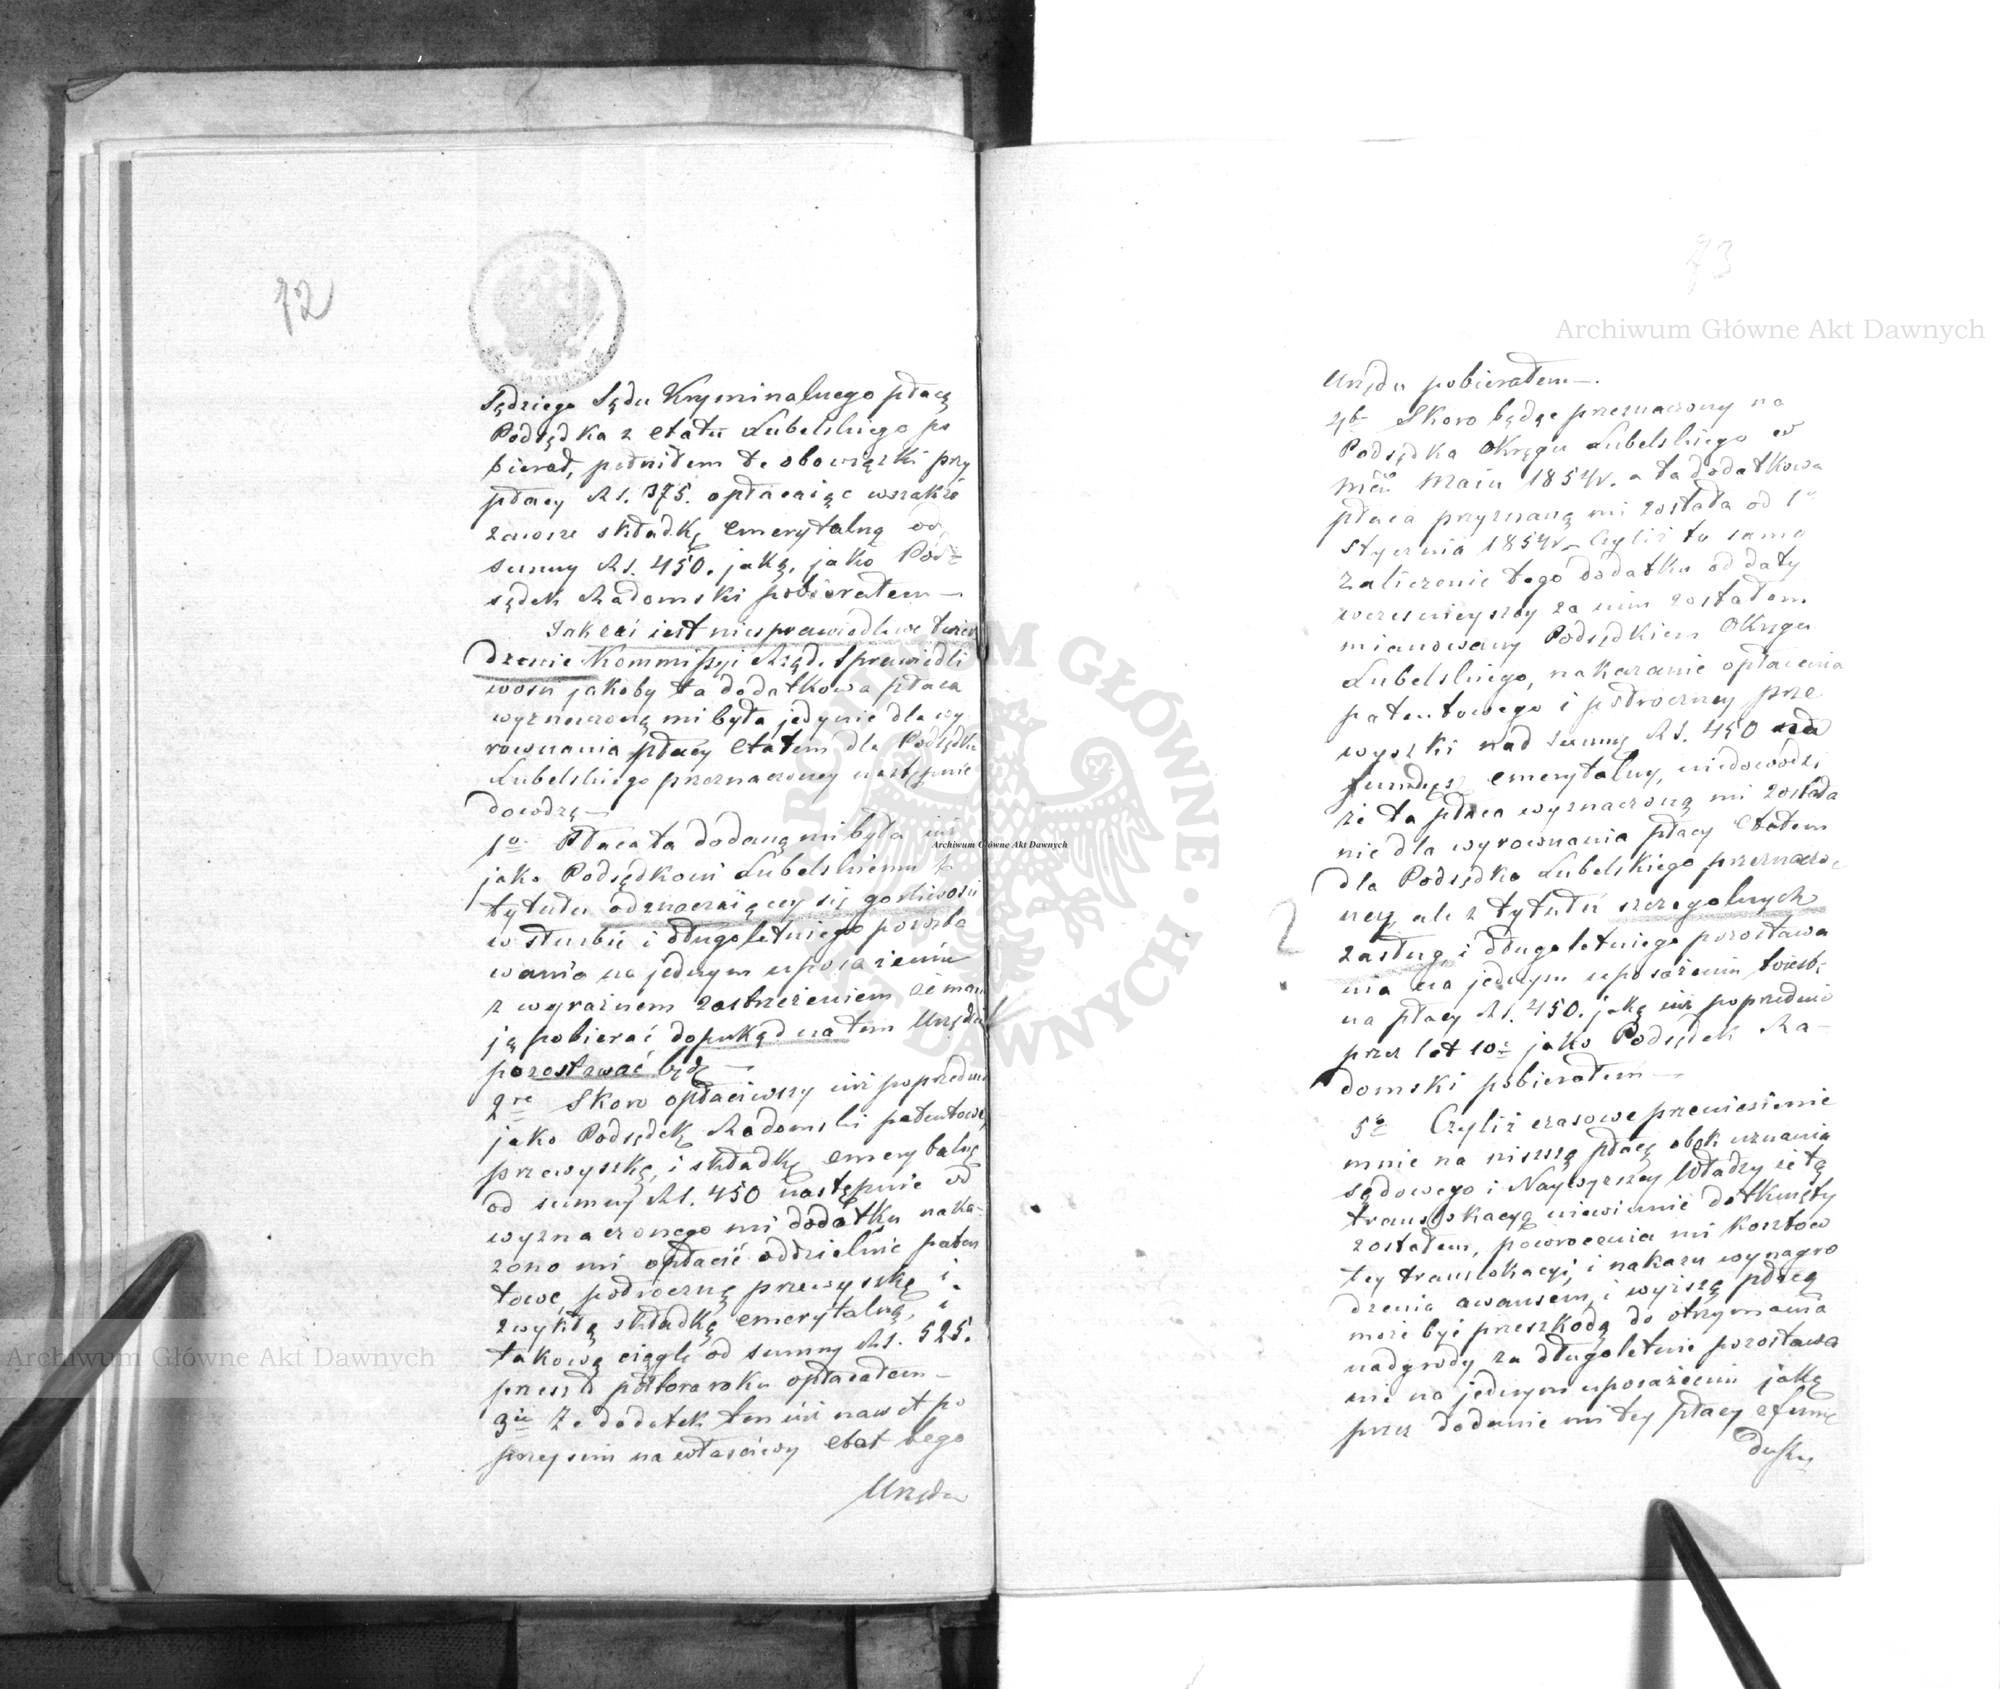 72
Sędziego Sądu Kryminalnego płacę
Podsędka z etatu Lubelskiego po
bierał, pełniłem te obowiązki przy
płacy Rs. 375. opłacaiąc wszakże
zawsze składkę emerytalną od
summy Rs. 450. jaką, jako Pod=
sędek Radomski pobierałem —
Jak zaś iest niesprawiedliwe twier
dzenie Kommissyi Rząd. Sprawiedli
wości jakoby ta dodatkowa płaca
wyznaczoną mi była jedynie dla wy
rownania płacy etatem dla Podsędka
Lubelskiego przeznaczoney następnie
dowodzę —
1o Płaca ta dodaną mi była iuż
jako Podsędkowi Lubelskiemu z
tytułu odznaczaiącey się gorliwości
w służbie i długoletniego pozosta
wania na jednym uposażeniu
z wyraźnem zastrzeżeniem że mam
ją pobierać dopokąd na tem Urzędzie
pozostawać będę —
2re Skoro opłaciwszy iuż poprzednio
jako Podsędek Radomski patentowe,
przewyszkę, i składkę emerytalną
od summy Rs. 450 następnie od
wyznaczonego mi dodatku naka-
zono mi opłacić oddzielnie paten
towe, półroczną przewyszkę i
zwykłą składkę emerytalną, i
takową ciągle od summy Rs. 525.
przeszło półtora roku opłacałem —
3ie Ze dodatek ten iuż nawet po
przeyściu na właściwy etat tego
Urzędu
73
Archiwum Główne Akt Dawnych
Urzędu pobierałem —.
4te Skoro będąc przeznaczony na
Podsędka Okręgu Lubelskiego w
mcu Maiu 1854r. a ta dodatkowa
płaca przyznaną mi została od 1o
Stycznia 1854r. Czyliż to samo
zaliczenie tego dodatku od daty
wcześnieyszey za nim zostałem
mianowany Podsędkiem Okręgu
Lubelskiego, nakazanie opłacenia
patentowego i półroczney prze
wyszki nad summę Rs. 450 na
fundusz emerytalny, niedowodzi
że ta płaca wyznaczoną mi została
nie dla wyrownania płacy etatem
dla Podsędka Lubelskiego przeznaczo
ney, ale z tytułu szczegolnych
zasług, i długoletniego pozostawa
nia na jednym uposażeniu
na płacy Rs. 450. jaką iuż poprzednio
przez lat 10 jako Podsędek Ra-
domski pobierałem —
5te Czyliż czasowe przeniesienie
mnie na niższą płacę obok uznania
sądowego i Naywyższey Władzy że tą
translokacyą niewinnie dotknięty
zostałem, powrocenia mi kosztow
tey translokacyi, i nakazu wynagro
dzenia awansem, i wyższą płacą
może być przeszkodą do otrzymania
nadgrody za długoletnie pozostawa
nie na jednym uposażeniu jaką
przez dodanie mi tey płacy z fun
duszu
Archiwum Główne Akt Dawnych
ARCHIWUM GŁÓWNE AKT DAWNYCH
Archiwum Główne Akt Dawnych